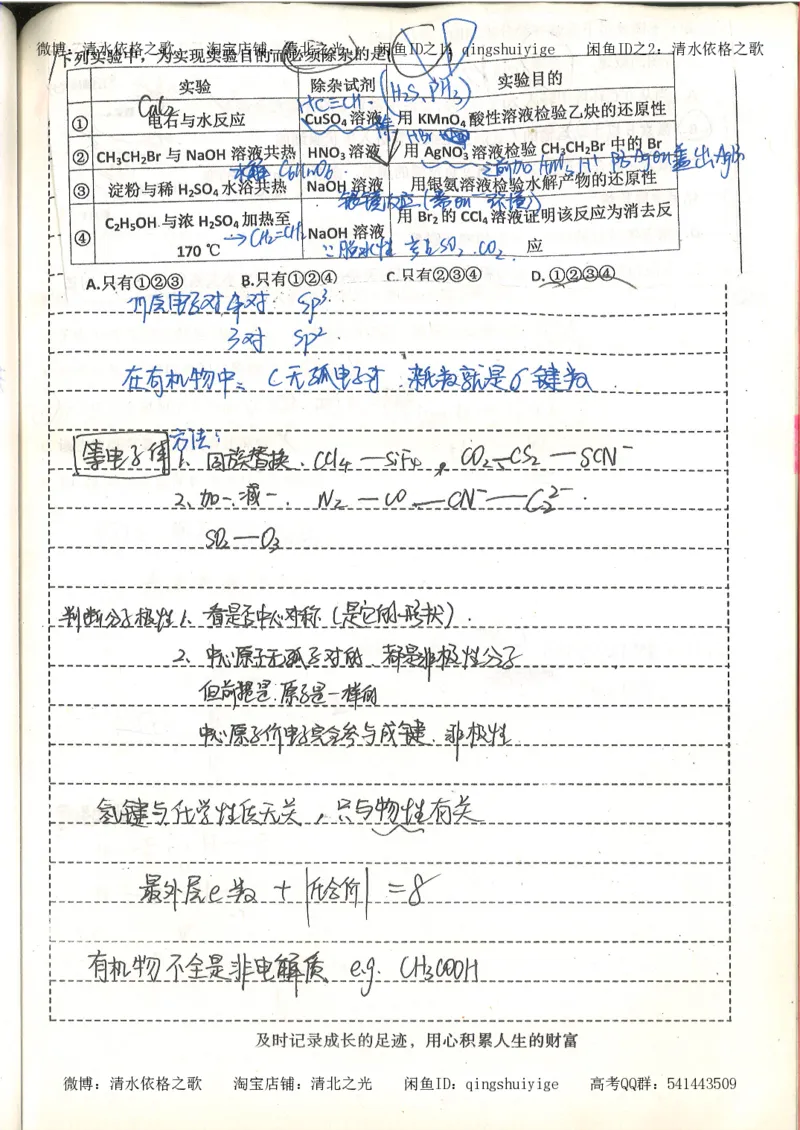 微博：清水依格之歌 淘宝店铺：清北之光 闲鱼ID之1：qingshuiyige 闲鱼ID之2：清水依格之歌
下列实验中，为实现实验目的而必须除杂的是(
实验 除杂试剂 实验目的
CaC₂ HC≡CH. (H₂S、PH₃)
① 电石与水反应 CuSO₄ 溶液 用 KMnO₄ 酸性溶液检验乙炔的还原性
HBr
② CH₃CH₂Br 与 NaOH 溶液共热 HNO₃ 溶液 用 AgNO₃ 溶液检验 CH₃CH₂Br 中的 Br
水解 C₆H₁₂O₆
③ 淀粉与稀 H₂SO₄ 水浴共热 NaOH 溶液 用银氨溶液检验水解产物的还原性
银镜反应(需OH⁻环境)
④ C₂H₅OH 与浓 H₂SO₄ 加热至 170 ℃ NaOH 溶液 用 Br₂ 的 CCl₄ 溶液证明该反应为消去反应
→CH₂=CH₂ ∵脱水性 产生SO₂、CO₂
A.只有①②③ B.只有①②④ C.只有②③④ D.①②③④
价层电子对 4对 sp³
3对 sp²
在有机物中、C无孤电子对 杂化数就是σ键数
等电子体 方法：
1、同族替换、CCl₄—SiF₄，CO₂—CS₂—SCN⁻
2、加一减一、N₂—CO—CN⁻—C₂²⁻.
SO₂—O₃
判断分子极性 1、看是否中心对称（是它的形状）.
2、中心原子无孤子对的 都是非极性分子
但前提是.原子是一样的
中心原子价电子完全参与成键.非极性
氢键与化学性质无关，只与物性有关
最外层e数 + |化合价| = 8
有机物不全是非电解质 e.g. CH₃COOH
及时记录成长的足迹，用心积累人生的财富
微博：清水依格之歌 淘宝店铺：清北之光 闲鱼ID：qingshuiyige 高考QQ群：541443509